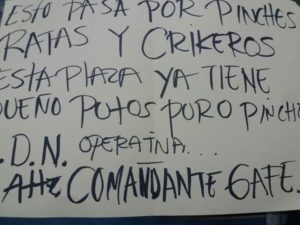 ESTO PASA POR PINCHES
RATAS Y CRIKEROS
ESTA PLAZA YA TIENE
DUEÑO PUTOS PORO PINCHE
.D.N. OPERATINA...
COMANDANTE GAFE.